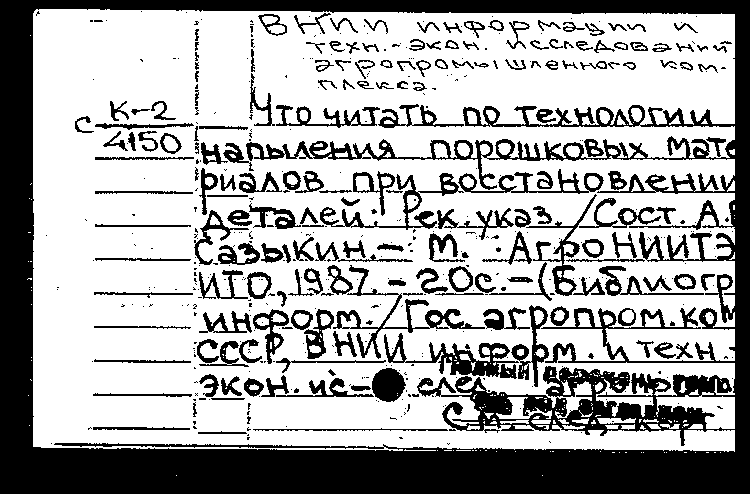 ВНИИ информации и
техн.-экон. исследований
агропромышленного ком-
плекса.
К-2
С 4150
Что читать по технологии
напыления порошковых мате
риалов при восстановлении
деталей: Рек. указ. / Сост. А.В
Сазыкин. - М. : АгроНИИТЭ
ИТО, 1987. - 20с. - (Библиогр
информ. / Гос. агропром. ком
СССР, ВНИИ информ. и техн. -
экон. ис- след агропром
См. след. карт